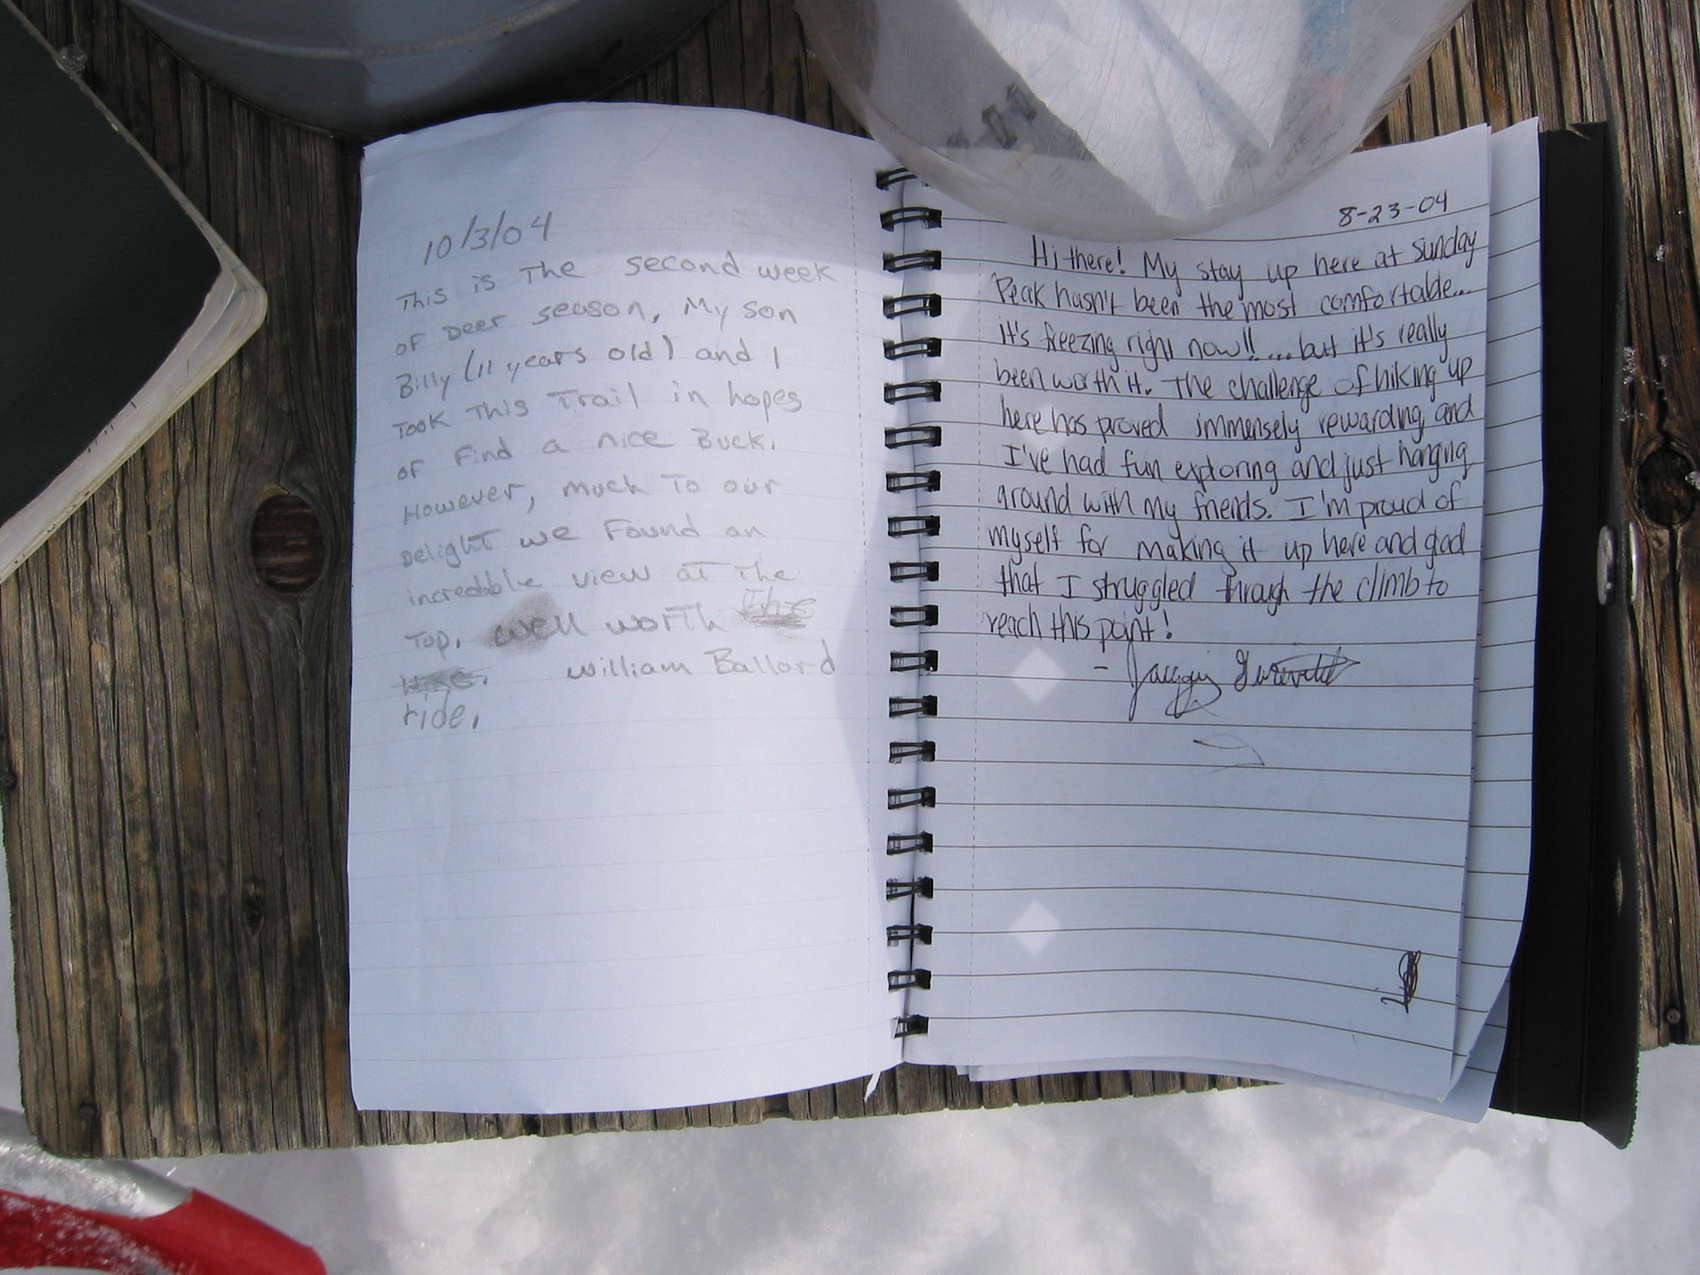 10/3/04
This is The second week
of Deer season, My son
Billy (11 years old) and I
Took This Trail in hopes
of Find a nice Buck.
However, much To our
Delight we Found an
incredible view at The
Top, well worth the
ride.
William Ballard
8-23-04
Hi there! My stay up here at Sunday
Peak hasn't been the most comfortable...
it's freezing right now!! ...but it's really
been worth it. The challenge of hiking up
here has proved immensely rewarding, and
I've had fun exploring and just hanging
around with my friends. I'm proud of
myself for making it up here and glad
that I struggled through the climb to
reach this point!